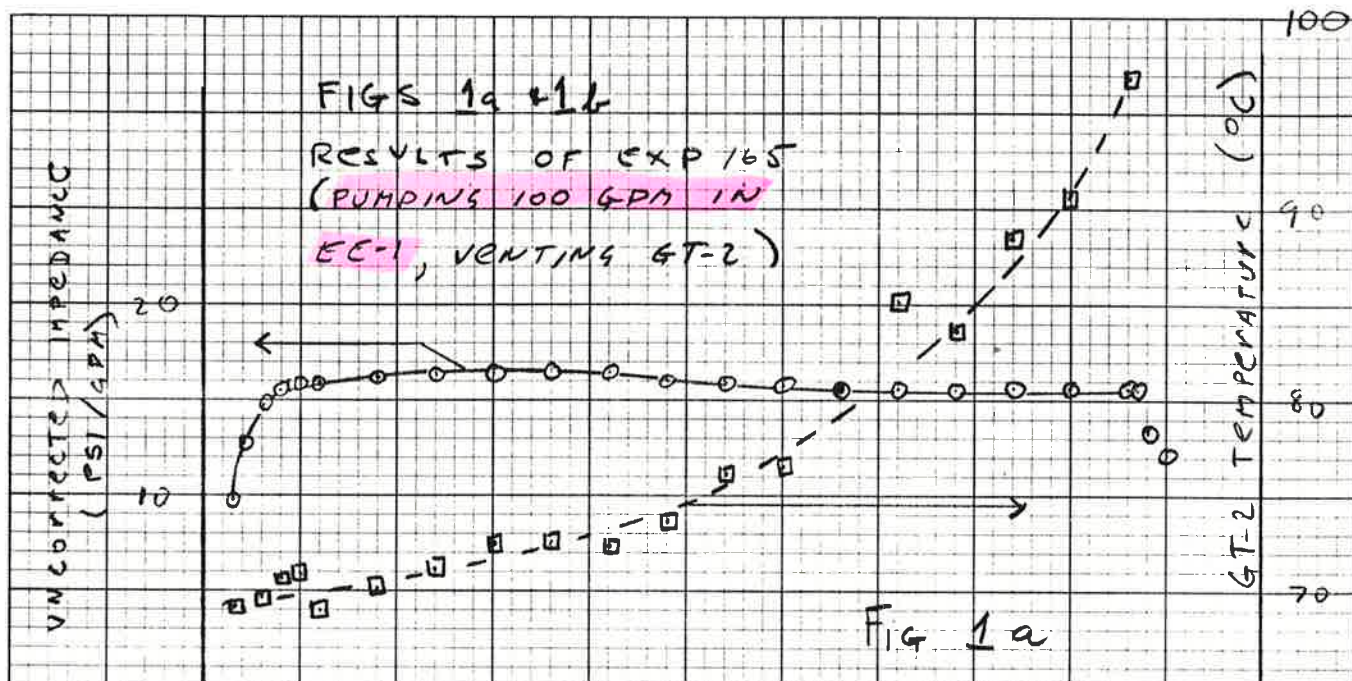 100
FIGS 1a & 1b
RESULTS OF EXP 165
(PUMPING 100 GPM IN
EE-1, VENTING GT-2)
UNCORRECTED IMPEDANCE
(PSI/GPM)
20
10
GT-2 TEMPERATURE (°C)
90
80
70
FIG 1a